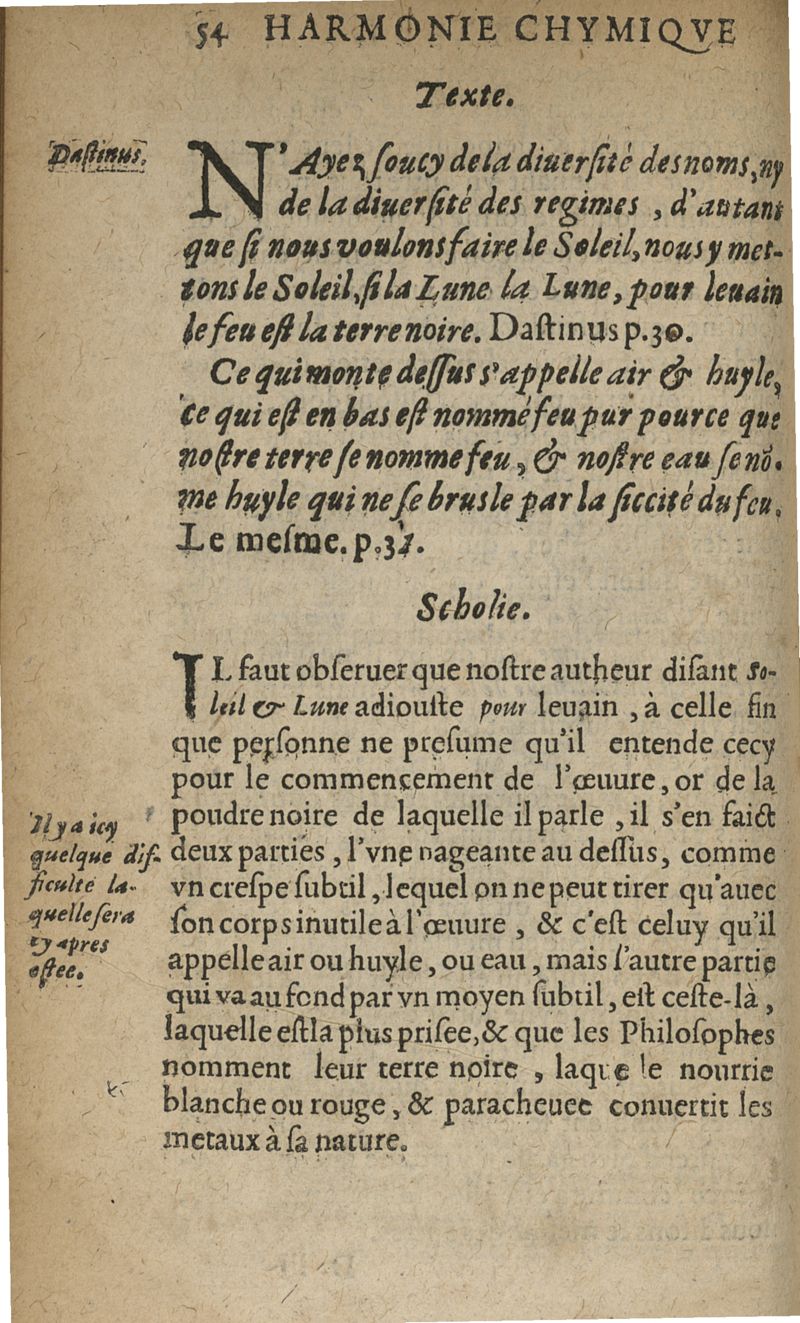 54 HARMONIE CHYMIQVE
Texte.
Dastinus.
N'Ayez soucy de la diuersité des noms, ny
de la diuersité des regimes, d'autant
que si nous voulons faire le Soleil, nous y met-
tons le Soleil, si la Lune la Lune, pour leuain
le feu est la terre noire. Dastinus p.30.
Ce qui monte dessus s'appelle air & huyle,
ce qui est en bas est nommé feu pur pource que
nostre terre se nomme feu, & nostre eau se nō-
me huyle qui ne se brusle par la siccité du feu.
Le mesme. p.31.
Scholie.
IL faut obseruer que nostre autheur disant So-
leil & Lune adiouste pour leuain, à celle fin
que personne ne presume qu'il entende cecy
pour le commencement de l'œuure, or de la
poudre noire de laquelle il parle, il s'en faict
deux parties, l'vne nageante au dessus, comme
vn crespe subtil, lequel on ne peut tirer qu'auec
son corps inutile à l'œuure, & c'est celuy qu'il
appelle air ou huyle, ou eau, mais l'autre partie
qui va au fond par vn moyen subtil, est ceste-là,
laquelle est la plus prisee, & que les Philosophes
nomment leur terre noire, laquelle nourrie
blanche ou rouge, & paracheuee conuertit les
metaux à sa nature.
Il y a icy
quelque dif-
ficulté la-
quelle sera
cy apres
ostee.